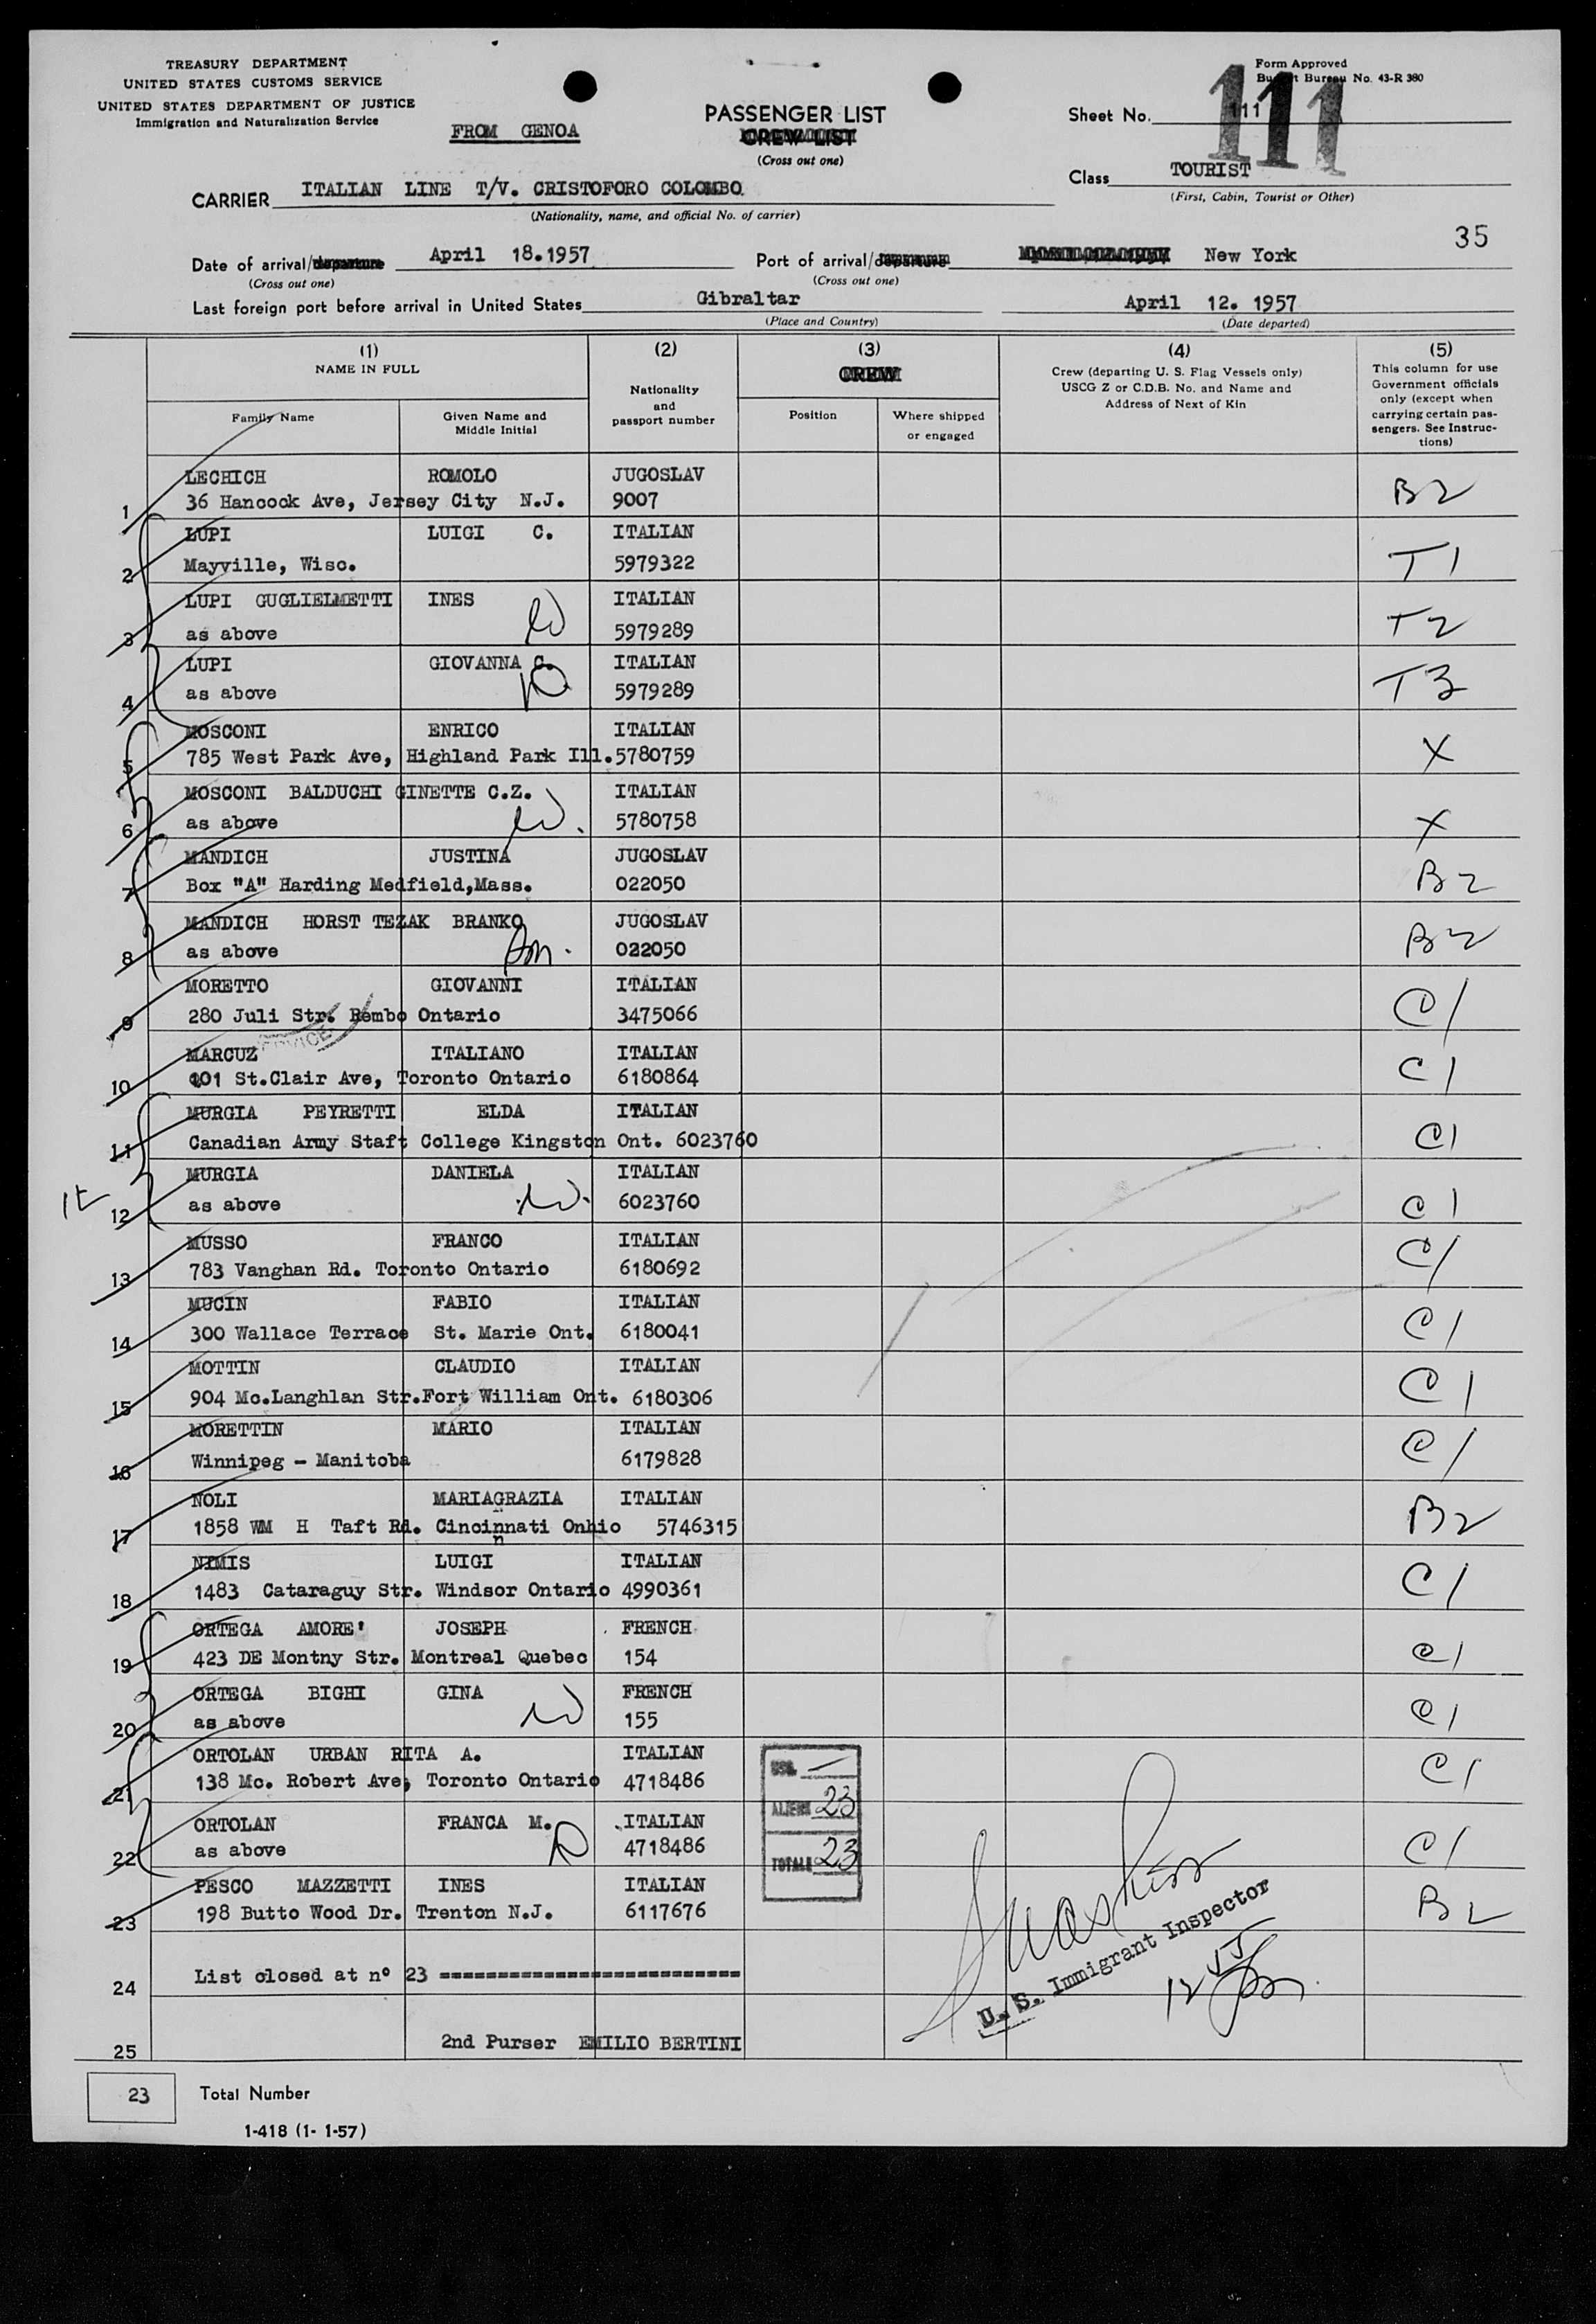 TREASURY DEPARTMENT
UNITED STATES CUSTOMS SERVICE
UNITED STATES DEPARTMENT OF JUSTICE
Immigration and Naturalization Service
FROM GENOA
PASSENGER LIST
CREW LIST
(Cross out one)
Form Approved
Budget Bureau No. 43-R 380
Sheet No. 111
111
Class TOURIST
(First, Cabin, Tourist or Other)
CARRIER ITALIAN LINE T/V. CRISTOFORO COLOMBO
(Nationality, name, and official No. of carrier)
35
Date of arrival/departure April 18.1957
(Cross out one)
Port of arrival/departure New York
(Cross out one)
Last foreign port before arrival in United States Gibraltar April 12. 1957
(Place and Country) (Date departed)
(1) NAME IN FULL
Family Name
Given Name and Middle Initial
(2)
Nationality and passport number
(3)
CREW
Position
Where shipped or engaged
(4)
Crew (departing U. S. Flag Vessels only)
USCG Z or C.D.B. No. and Name and
Address of Next of Kin
(5)
This column for use
Government officials
only (except when
carrying certain pas-
sengers. See Instruc-
tions)
LECHICH ROMOLO JUGOSLAV
1 36 Hancock Ave, Jersey City N.J. 9007 B2
LUPI LUIGI C. ITALIAN
2 Mayville, Wisc. 5979322 T1
LUPI GUGLIELMETTI INES ITALIAN
3 as above 5979289 T2
LUPI GIOVANNA C. ITALIAN
4 as above 5979289 T3
MOSCONI ENRICO ITALIAN
5 785 West Park Ave, Highland Park Ill. 5780759 X
MOSCONI BALDUCHI GINETTE C.Z. ITALIAN
6 as above 5780758 X
MANDICH JUSTINA JUGOSLAV
7 Box "A" Harding Medfield,Mass. 022050 B2
MANDICH HORST TEZAK BRANKO JUGOSLAV
8 as above 022050 B2
MORETTO GIOVANNI ITALIAN
9 280 Juli Str. Rembo Ontario 3475066 C1
MARCUZ ITALIANO ITALIAN
10 101 St.Clair Ave, Toronto Ontario 6180864 C1
MURGIA PEYRETTI ELDA ITALIAN
11 Canadian Army Staft College Kingston Ont. 6023760 C1
MURGIA DANIELA ITALIAN
12 as above 6023760 C1
MUSSO FRANCO ITALIAN
13 783 Vanghan Rd. Toronto Ontario 6180692 C1
MUCIN FABIO ITALIAN
14 300 Wallace Terrace St. Marie Ont. 6180041 C1
MOTTIN CLAUDIO ITALIAN
15 904 Mc.Langhlan Str.Fort William Ont. 6180306 C1
MORETTIN MARIO ITALIAN
16 Winnipeg - Manitoba 6179828 C1
NOLI MARIAGRAZIA ITALIAN
17 1858 WM H Taft Rd. Cincinnati Onhio 5746315 B2
NIMIS LUIGI ITALIAN
18 1483 Cataraguy Str. Windsor Ontario 4990361 C1
ORTEGA AMORE' JOSEPH FRENCH
19 423 DE Montny Str. Montreal Quebec 154 C1
ORTEGA BIGHI GINA FRENCH
20 as above 155 C1
ORTOLAN URBAN RITA A. ITALIAN
21 138 Mc. Robert Ave, Toronto Ontario 4718486 C1
ORTOLAN FRANCA M. ITALIAN
22 as above 4718486 C1
PESCO MAZZETTI INES ITALIAN
23 198 Butto Wood Dr. Trenton N.J. 6117676 B2
USA. —
ALIENS 23
TOTALE 23
U. S. Immigrant Inspector
24 List closed at nº 23 ==========================
25 2nd Purser EMILIO BERTINI
23 Total Number
1-418 (1- 1-57)